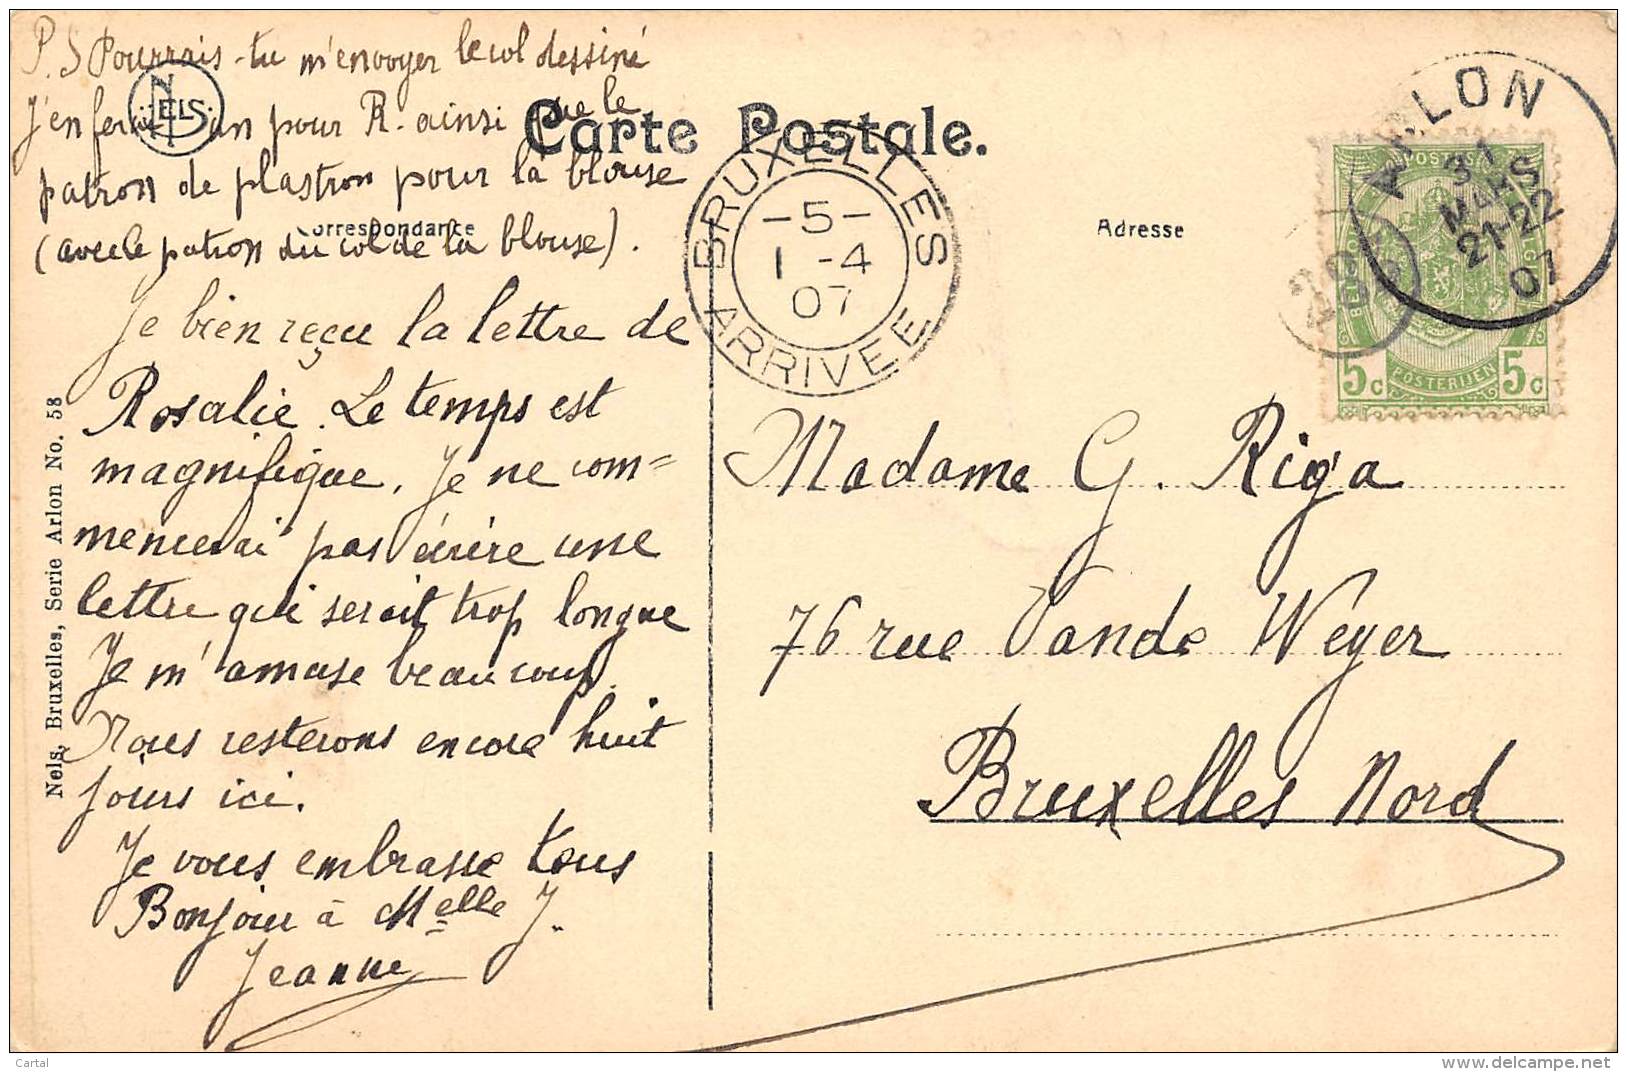 P.S Pourrais-tu m'envoyer le col dessiné
J'en ferai un pour R. ainsi que le
patron de plastron pour la blouse
(avec le patron du col de la blouse).
NELS
Carte Postale.
Correspondance
Adresse
Je bien reçu la lettre de
Rosalie. Le temps est
magnifique. Je ne com=
mencerai pas écrire une
lettre qui serait trop longue
Je m'amuse beaucoup.
Nous resterons encore huit
jours ici.
Je vous embrasse tous
Bonjour à Melle J.
Jeanne
Nels, Bruxelles, Serie Arlon No. 58
BRUXELLES
-5-
1-4
07
ARRIVEE
ARLON
31
MARS
21-22
07
POSTES
BELGIQUE
5c POSTERIJEN 5c
Madame G. Riga
76 rue Vande Weyer
Bruxelles Nord
Cartal
www.delcampe.net